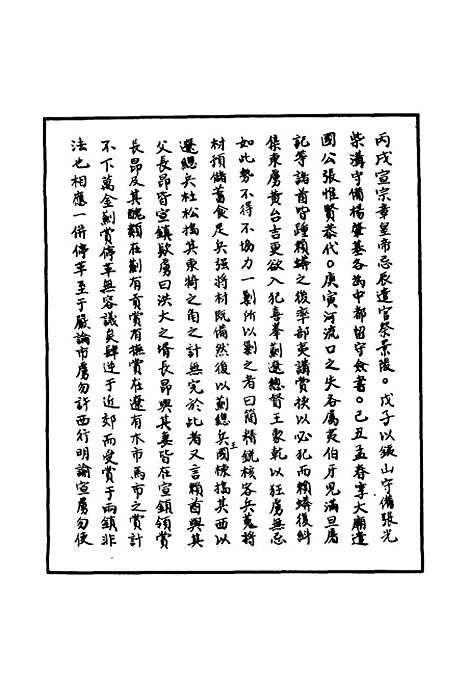 丙戌宣宗章皇帝忌辰遣官祭景陵。戊子以鎮山守備張光
柴溝守備楊肇基各為中都留守僉書。己丑孟春享大廟遣
國公張惟賢恭代。庚寅河流口之失各屬夷伯牙兒滿旦屠
記等諸酋皆踵賴蟒之後率部夷講賞挾以必犯而賴蟒復糾
集東虜黃台吉更欲入犯喜峯薊遼總督王象乾以狂虜無忌
如此勢不得不協力一剿所以剿之者曰簡精銳核客兵蒐將
材預儲蓄食足兵強將材既備然後以薊總兵王國棟搗其西以
遼總兵杜松搗其東犄之角之計無完於此者又言賴酋與其
父長昂皆宣鎮欵虜曰洪大之壻長昂與其妻皆在宣鎮領賞
長昂及其醜類在薊有貢賞有撫賞在遼有木市馬市之賞計
不下萬金薊賞停革無容議矣肆逆于近郊而受賞于兩鎮非
法也相應一併停革至于嚴諭市虜勿許西行明諭宣虜勿使